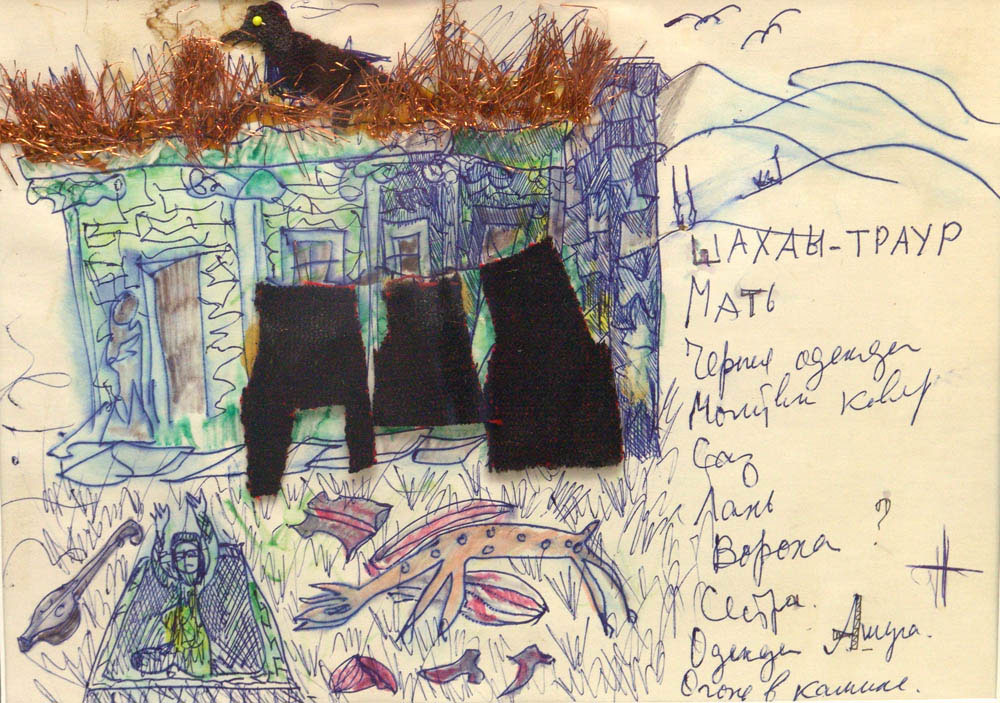 ШАХДЫ-ТРАУР
Мать
Черные одежды
Молитвен ковер
Саз
Лань
Ворона ?
Сестра.
Одежды Ашуга.
Огонь в камине.